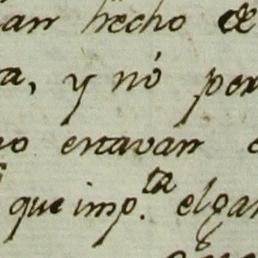 an hecho de
a, y nó per
o estavan
que imp.ta elgan